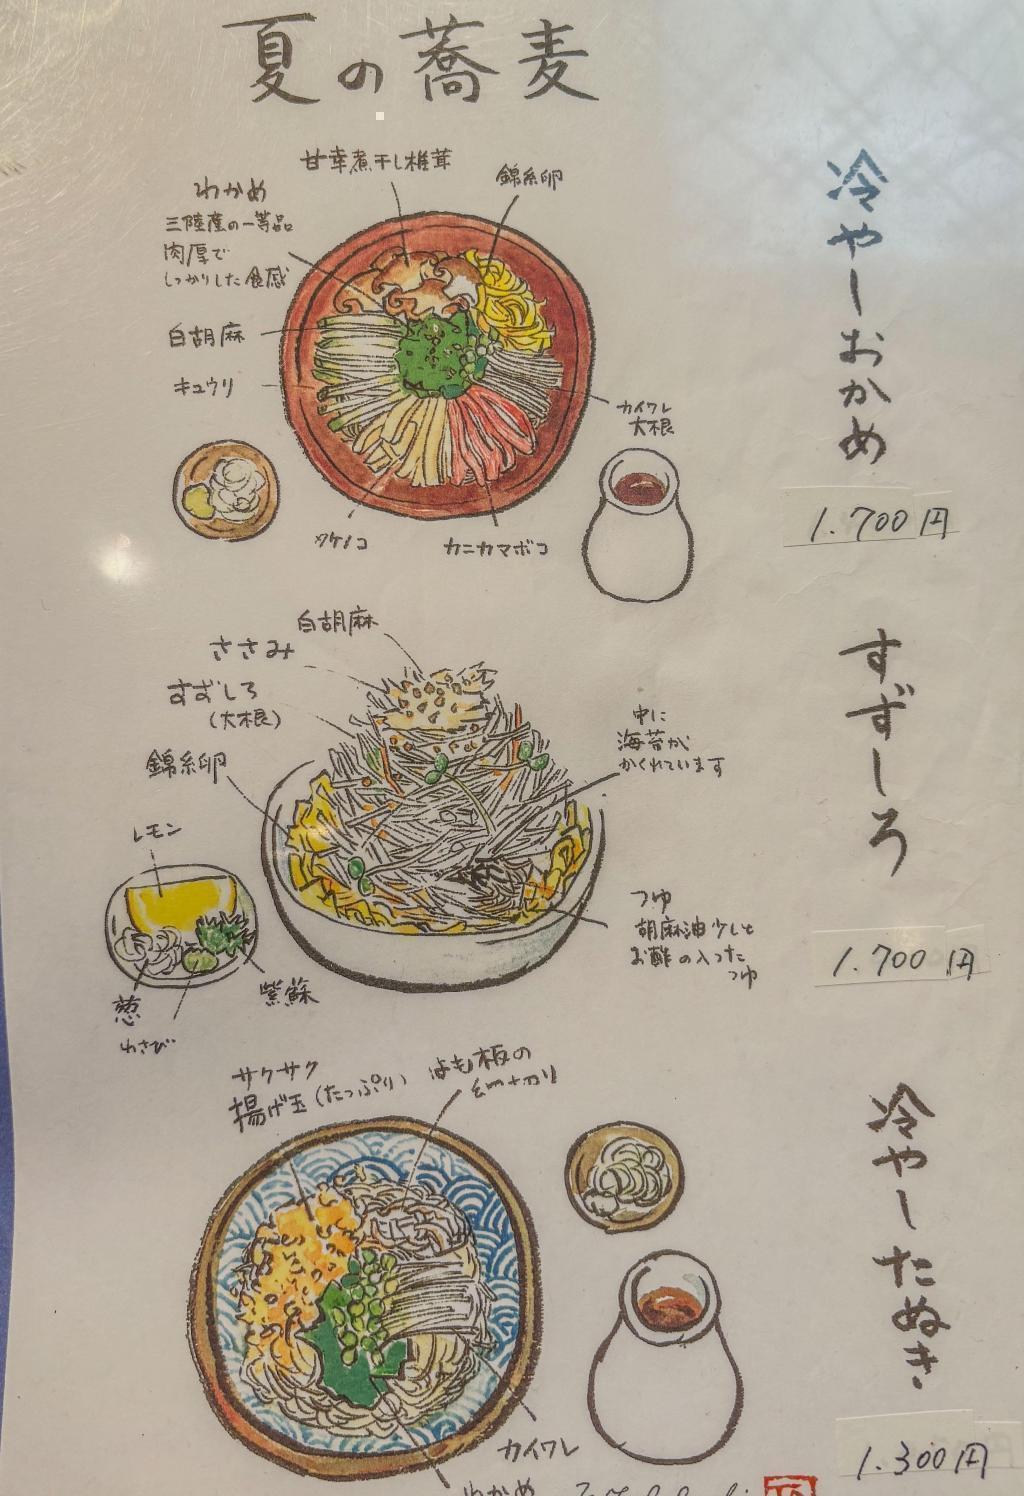 夏の蕎麦
冷やしおかめ
1.700円
甘辛煮干し椎茸
錦糸卵
わかめ
三陸産の一等品
肉厚で
しっかりした食感
白胡麻
キュウリ
カイワレ
大根
タケノコ
カニカマボコ
すずしろ
1.700円
白胡麻
ささみ
すずしろ
(大根)
錦糸卵
中に
海苔が
かくれています
レモン
つゆ
胡麻油少しと
お酢の入った
つゆ
葱
わさび
紫蘇
冷やしたぬき
1.300円
サクサク
揚げ玉(たっぷり)
はも板の
細切り
カイワレ
わかめ